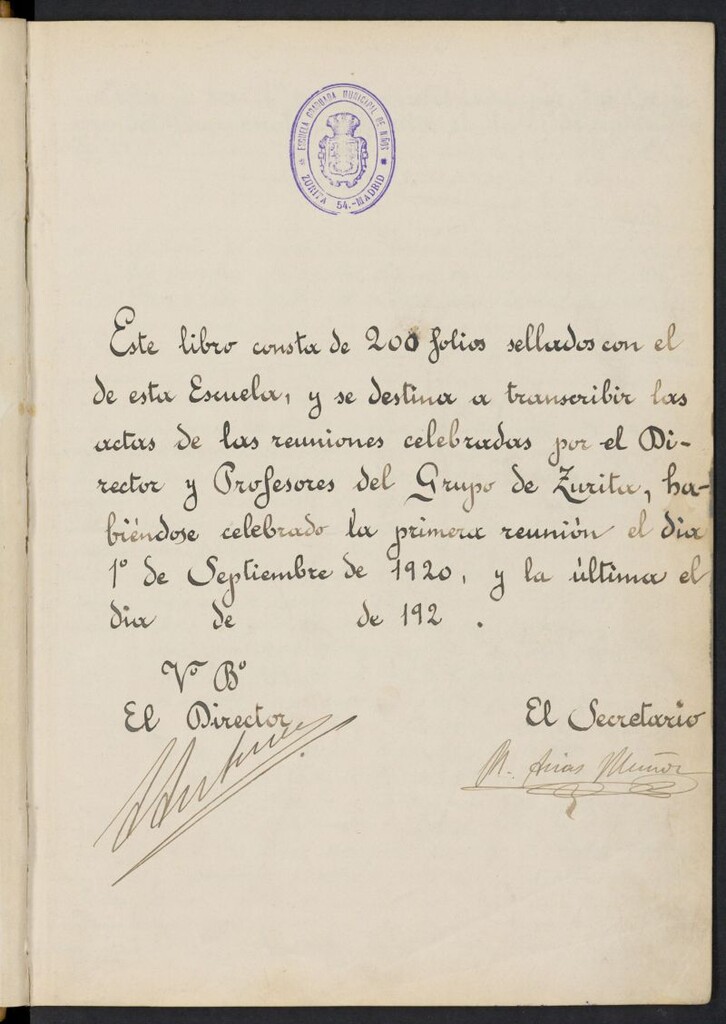 ESCUELA GRADUADA MUNICIPAL DE NIÑOS
ZURITA 54.-MADRID
Este libro consta de 200 folios sellados con el
de esta Escuela, y se destina a transcribir las
actas de las reuniones celebradas por el Di-
rector y Profesores del Grupo de Zurita, ha-
biéndose celebrado la primera reunión el dia
1º de Septiembre de 1920, y la última el
dia de de 192 .
Vº Bº
El Director
El Secretario
M. Arias Muñoz